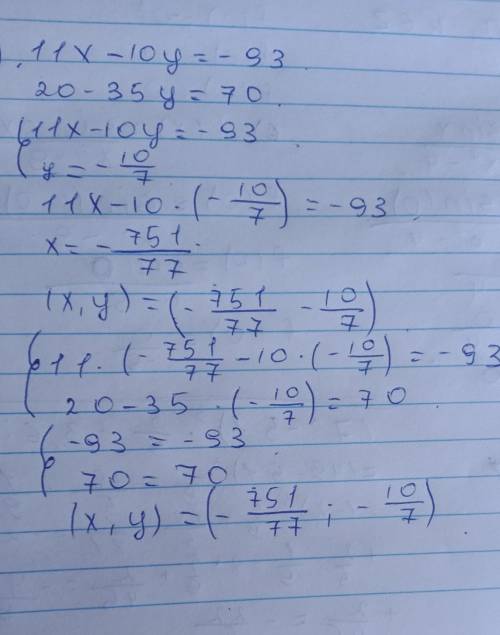 ). 11x-10y=-93
20-35y=70.
{11x-10y=-93
y=-10/7
11x-10·(-10/7)=-93
x=-751/77.
(x,y)=(-751/77 -10/7)
{11·(-751/77-10·(-10/7)=-93
20-35·(-10/7)=70
{-93=-93
70=70
(x,y)=(-751/77;-10/7)